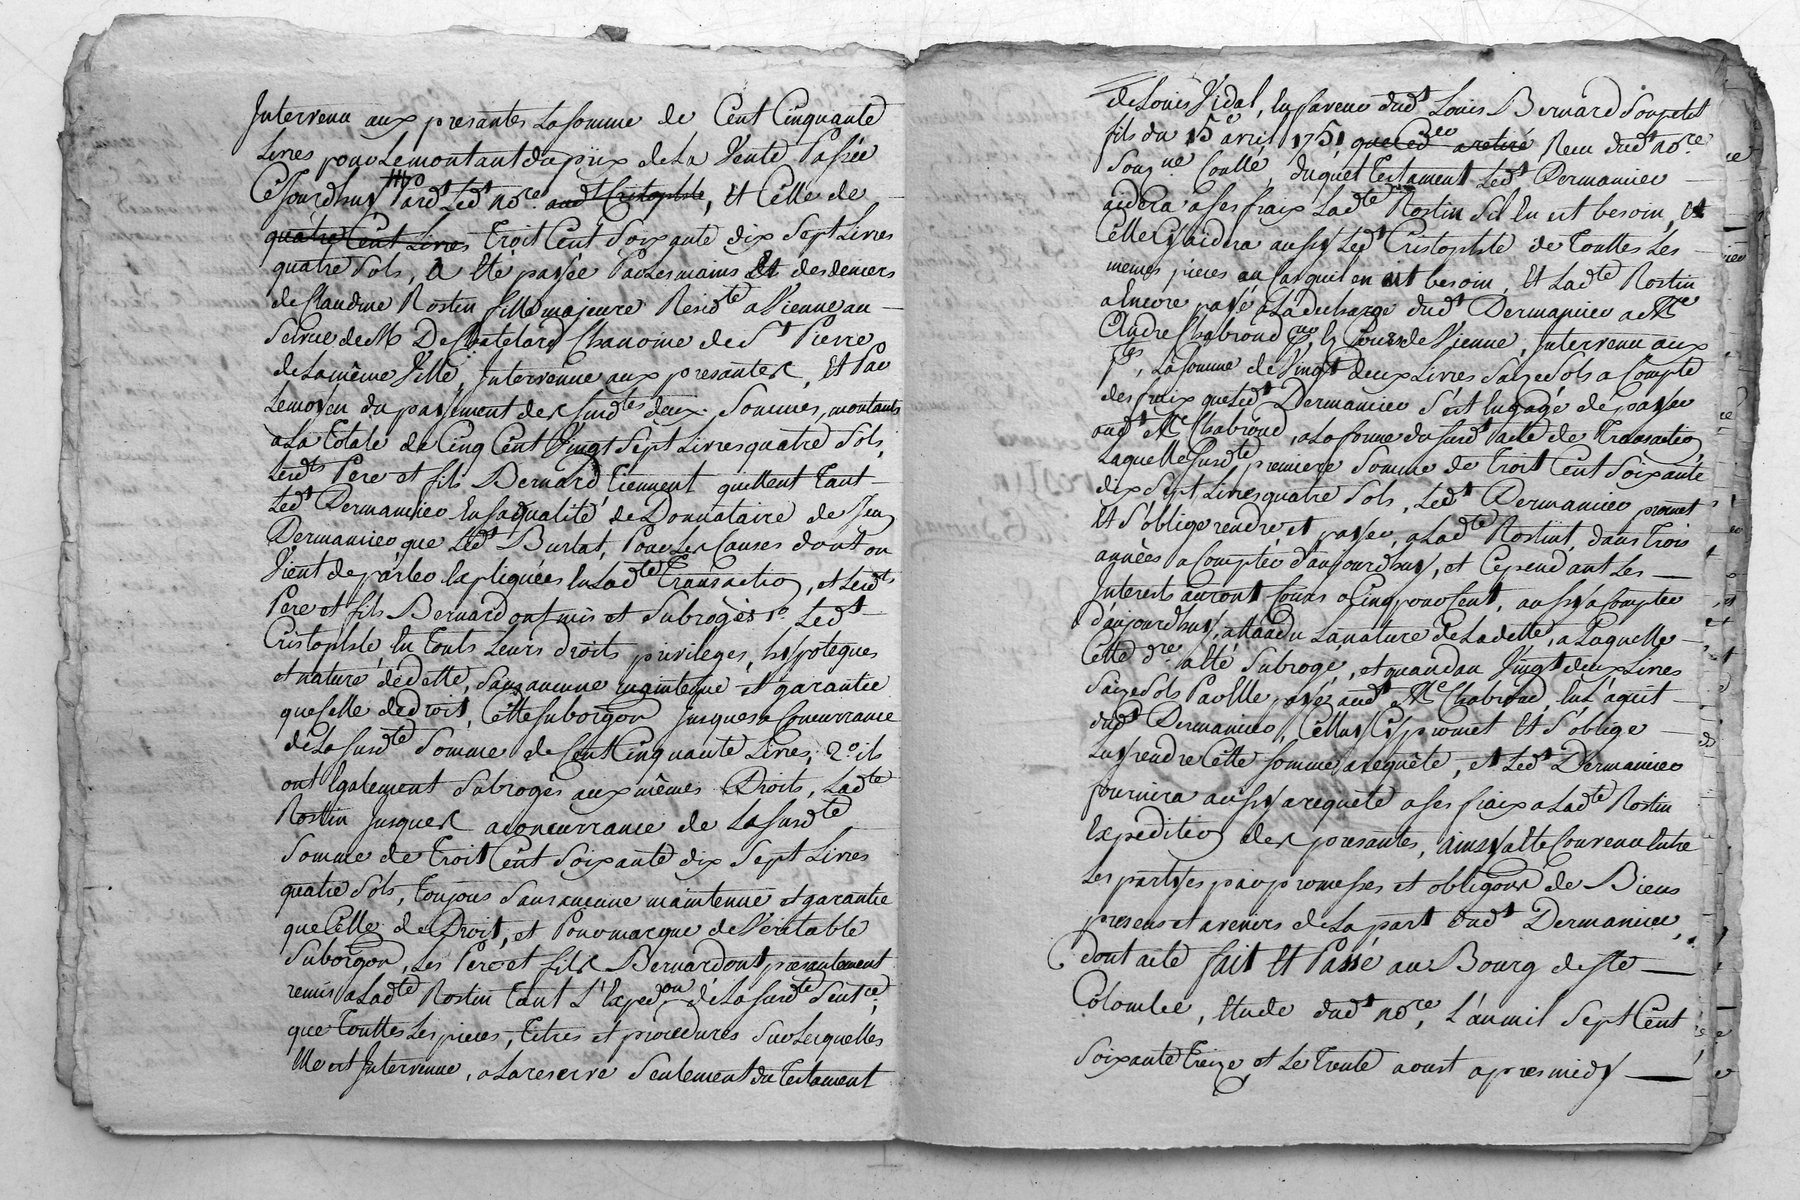 Intervenu aux presantes La somme de Cent Cinquante
Livres pour Le montant du prix de La Vente Passée
Cejourdhuy Pard.t Led.t no.re aud.t Cristophle, et Celle de
quatre Cent Livres Troit Cent Soixante dix Sept Livres
quatre Sols, a été payée Par Les mains et des deniers
de Claudine Rostin fille majeure Resid.te a Vienne au
Service de M. De Chatelard Chanoine de S.t Pierre
de La même Ville, Intervenue aux presantes, et Par
Le moyen du payement des susd.tes deux Sommes, montants
a La totale de Cinq Cent Vingt Sept Livres quatre Sols,
Lesd.ts Pere et fils Bernard tiennent quittent Tant
Led.t Dermanieu En Sa qualité de Donnataire de Jeu
Dermanieu, que Led.t Burlat, Pour Les Causes dont on
Vient de parler Expliquées En Lad.te Transaction, et Lesd.ts
Pere et fils Bernard ont mis et Subrogès 1.o Led.t
Cristophle En touts Leurs droits privileges, hypoteques
et nature de dette, Sans aucune maintenue et garantie
que Celle de droit, Cette Suborgõn Jusques a Concurrance
de La susd.te Somme de Cent Cinquante Livres, 2.o ils
ont Egalement Subrogès aux mêmes Droits, Lad.te
Rostin Jusques a concurrance de La susd.te
Somme de Troit Cent Soixante dix Sept Livres
quatre Sols, toujours Sans aucune maintenue et garantie
que Celle de Droit, et Pour marque de Veritable
Suborgõn, Les Pere et fils Bernard ont presantement
remis a Lad.te Rostin tant L'Exped.on de La susd.te Sent.ce,
que touttes Les pieces, titres et procedures Sur Lesquelles
Elle est Intervenue, a La reserve Seulement du Testament
de Louis Vidal, En faveur dud.t Louis Bernard Son petit
fils du 15.e avril 1751 que Led. a retiré Recu dud.t no.re
Soug.ne Coulle, duquel Testament Led.t Dermanieu
aidera a Ses fraix Lad.te Rostin S'il En est besoin, Et
Celle Cy aidera aussy Led.t Cristophle de touttes Les
memes pieces au Cas qu'il en ait besoin, Et Lad.te Rostin
a Encore payé a La decharge dud.t Dermanieu a M.e
André Chabroud En La Cour de Vienne, Intervenu aux
p.tes, La Somme de Vingt deux Livres Saize Sols a Compte
des fraix que Led.t Dermanieu S'est Engagé de payer
aud.t M.e Chabroud, a La forme du susd.t acte de Transaction
Laquelle susd.te premiere Somme de Troit Cent Soixante
dix Sept Livres quatre Sols, Led.t Dermanieu promet
Et S'oblige rendre et payer, a Lad.te Rostint, dans trois
années a Compter d'aujourdhuy, et Cependant Les
Interests auront Cours a Cinq pour Cent, aussy a Compter
d'aujourdhuy, attandu La nature de La dette, a Laquelle
Cette d.re a été Subrogé, et quand au Vingt deux Livres
Saize Sols Par Elle payé aud.t M.e Chabroud, En L'aquit
dud.t Dermanieu, Celluy Cy promet Et S'oblige
Luy rendre Cette Somme a requête, et Led.t Dermanieu
fournira aussy a requete a Ses fraix a Lad.te Rostin
Expedition des presantes, ainsy a été Convenu Entre
Les parties par promesses et obligons de Biens
presens et avenirs de La part dud.t Dermanieu,
dont acte fait Et Passé au Bourg de Ste
Colombe, Etude dud.t no.re, L'an mil Sept Cent
Soixante Treize, et Le Trente aoust apres midy